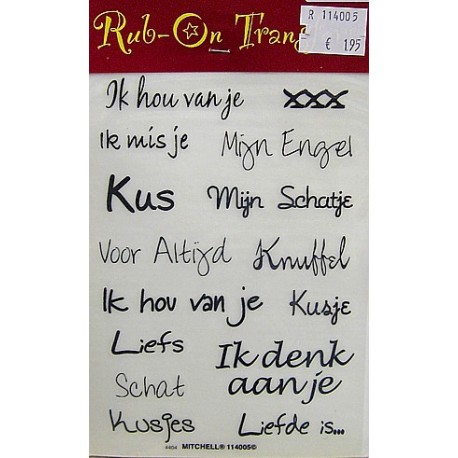 Rub-On Trans
R 114005
€ 195
Ik hou van je xxx
Ik mis je Mijn Engel
Kus Mijn Schatje
Voor Altijd Knuffel
Ik hou van je Kusje
Liefs Ik denk
Schat aan je
Kusjes Liefde is...
4404 MITCHELL® 114005©